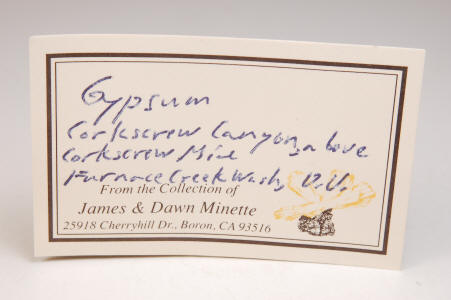 Gypsum
Corkscrew Canyon, above
Corkscrew Mine
Furnace Creek Wash, D.V.
From the Collection of
James & Dawn Minette
25918 Cherryhill Dr., Boron, CA 93516